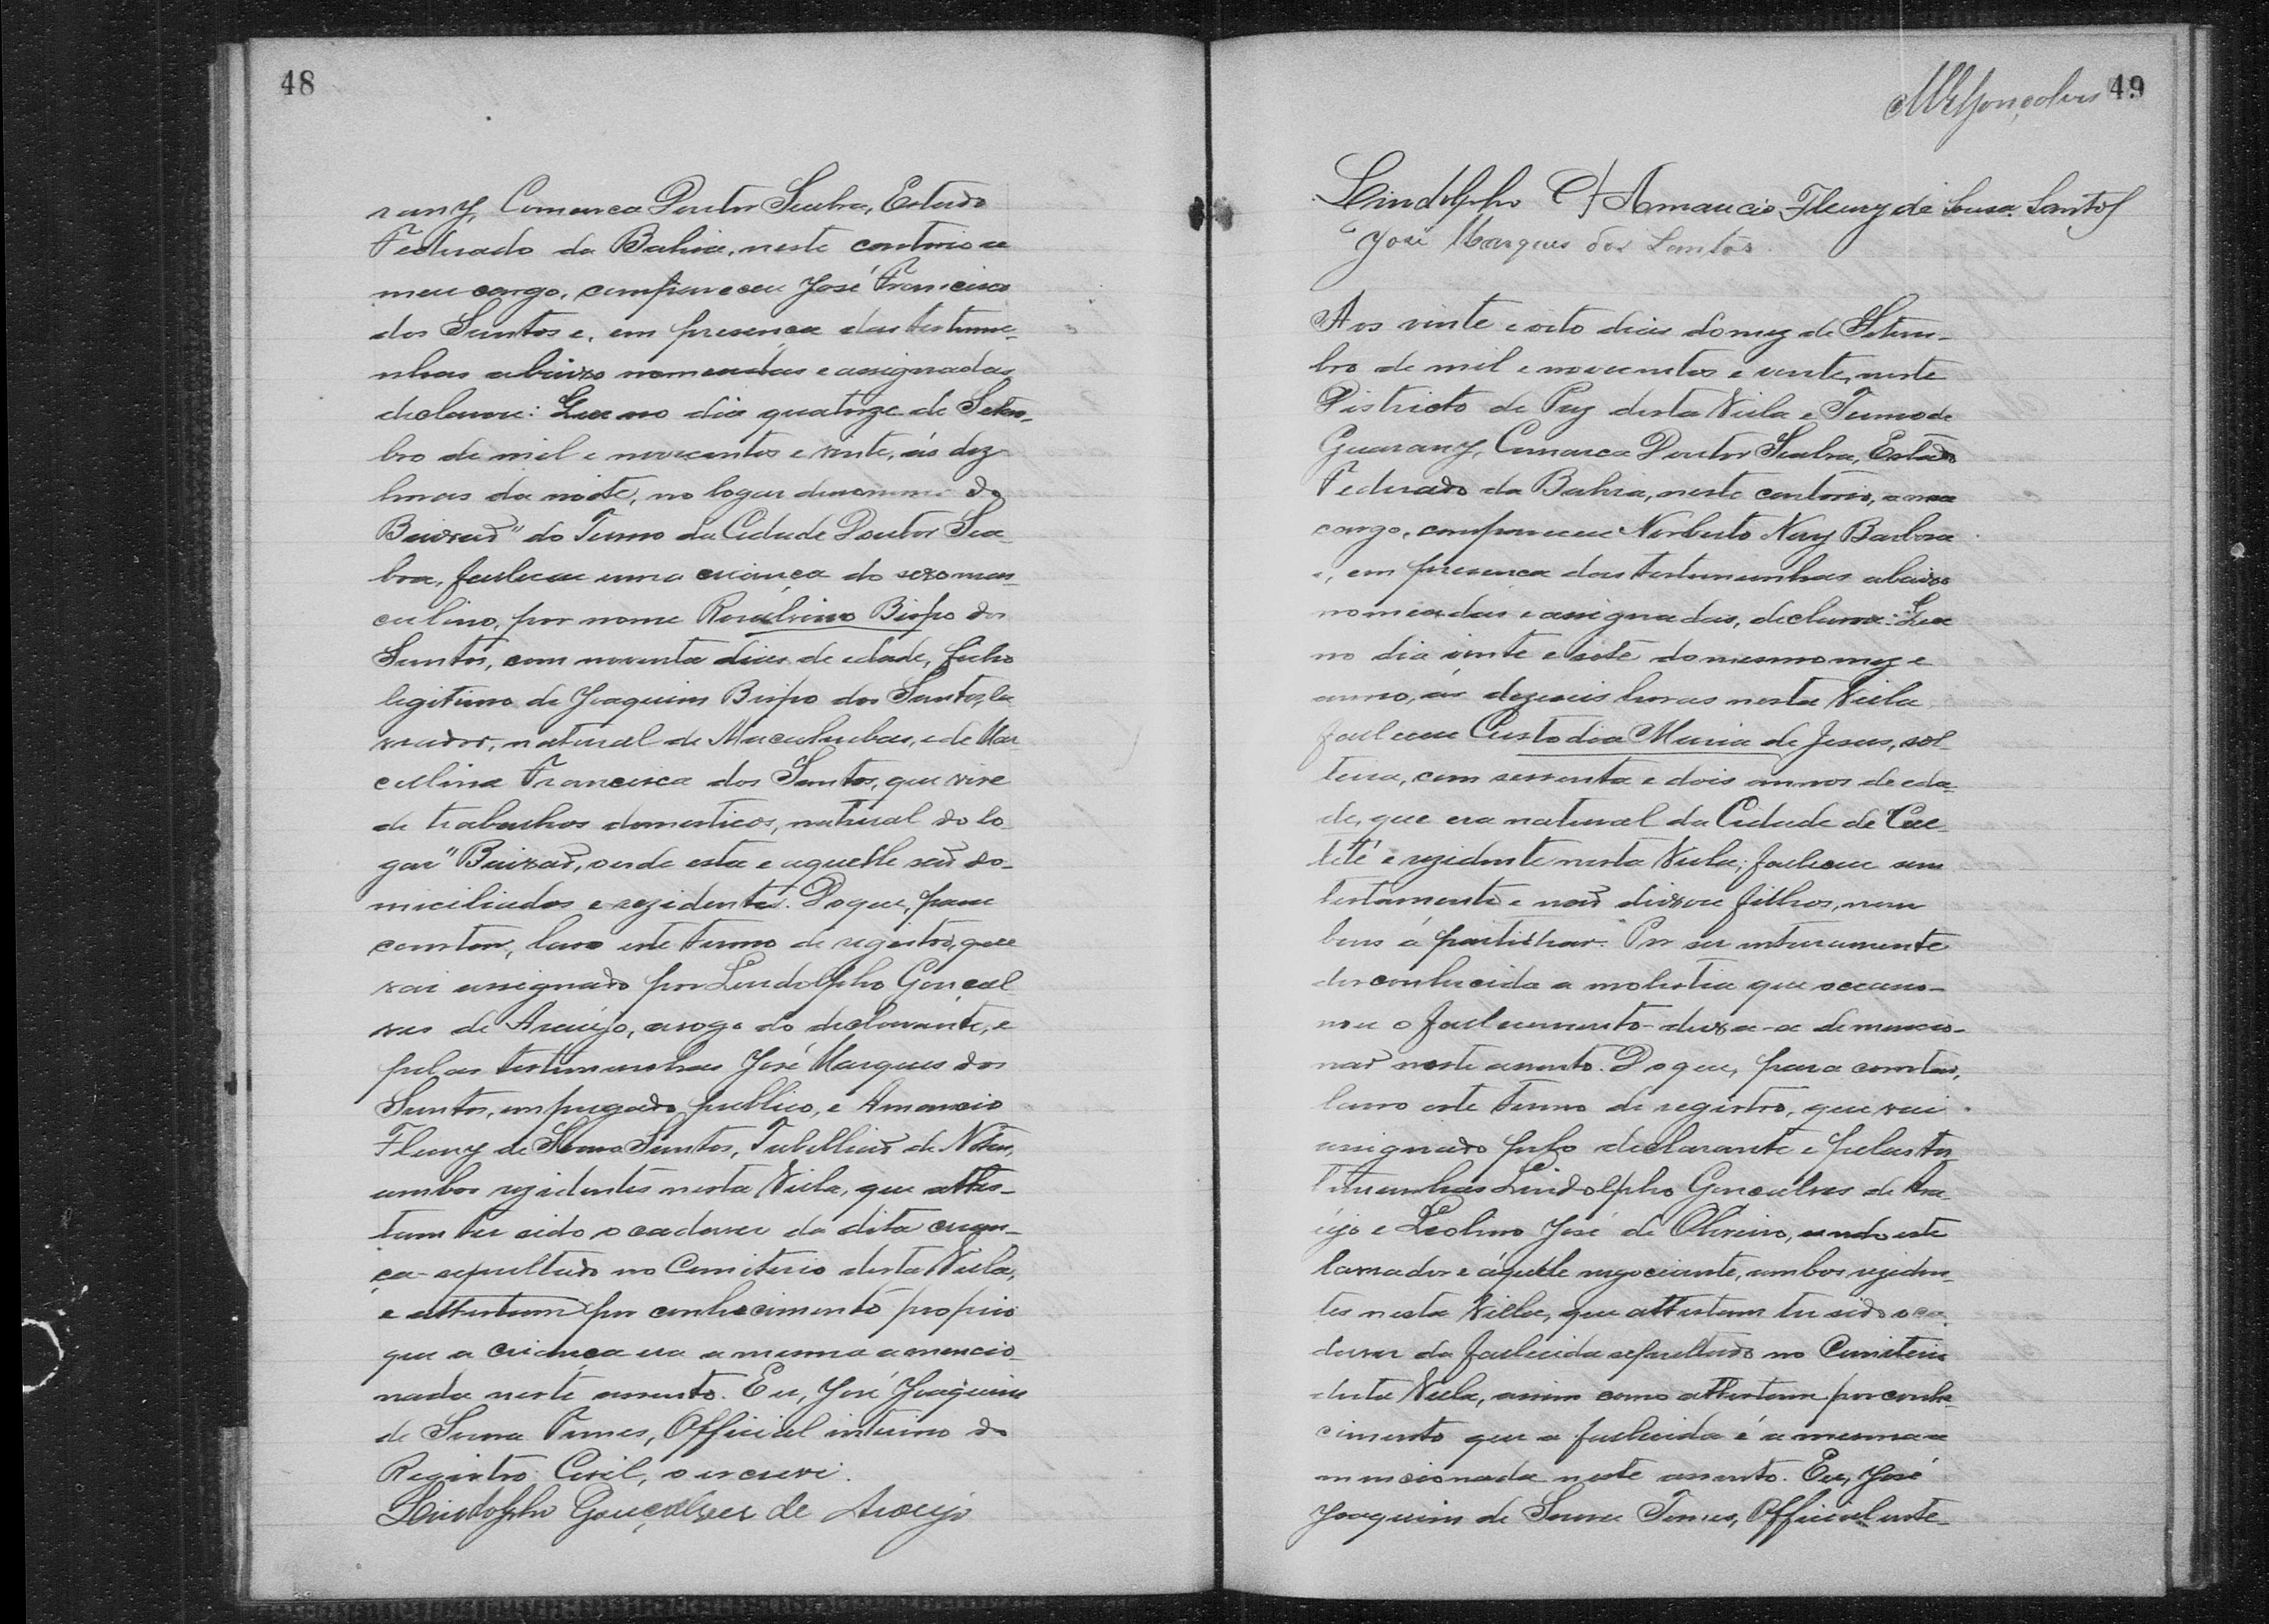 48
rany, Comarca Doutor Seabra, Estado
Federado da Bahia, neste cartorio a
meu cargo, compareceu José Francisco
dos Santos e, em presença das testemu-
nhas abaixo nomeadas e assignadas,
declarou: Que no dia quatorze de Setem-
bro de mil e novecentos e vinte, ás dez
horas da noite, no logar denominado
Baixaõ" do Termo da Cidade Doutor Sea-
bra, falleceu uma criança do sexo mas-
culino, por nome Rosalvino Bispo dos
Santos, com noventa dias de edade, filho
legitimo de Joaquim Bispo dos Santos, la
vrador, natural de Macahubas, e de Mar
cellina Francisca dos Santos, que vive
de trabalhos domesticos, natural do lo-
gar "Baixaõ, onde esta e aquelle saõ do-
miciliados e rezidentes. Do que, para
constar, lavro este termo de registro, que
vai assignado por Lindolpho Gonçal-
ves de Araújo, arogo do declarante, e
pelas testemunhas José Marques dos
Santos, empregado publico, e Amancio
Fleury de Sousa Santos, Tabelliaõ de Notas,
ambos rezidentes nesta Villa, que attes-
tam ter sido o cadaver da dita crian-
ça sepultado no Cemiterio desta Villa,
e attestam por conhecimento proprio
que a criança era a mesma a mencio-
nada neste assento. Eu, José Joaquim
de Sousa Tunes, Official interino do
Registro Civil, o escrevi.
Lindolpho Gonçalves de Araujo
49
Gonçalves
Lindolpho Amancio Fleury de Sousa Santos
José Marques dos Santos.
Aos vinte e oito dias do mez de Setem-
bro de mil e novecentos e vinte, neste
Districto de Paz desta Villa e Termo de
Guarany, Comarca Doutor Seabra, Estado
Federado da Bahia, neste cartorio, a meu
cargo, compareceu Norberto Nery Barbosa
e, em presença das testemunhas abaixo
nomeadas e assignadas, declarou: Que
no dia vinte e sete do mesmo mez e
anno, ás dezeseis horas nesta Villa
falleceu Custodia Maria de Jesus, sol-
teira, com sessenta e dois annos de eda-
de, que era natural da Cidade de Cae-
teté e rezidente nesta Villa; falleceu sem
testamento e naõ deixou filhos, nem
bens á partilhar. Por ser inteiramente
desconhecida a molestia que occasio-
nou o fallecimento deixa-a de mencio-
nar neste assento. Do que, para constar,
lavro este termo de registro, que vai
assignado pelo declarante e pelas tes-
temunhas Lindolpho Gonçalves de Ara-
újo e Leolino José de Oliveira, sendo este
lavrador e áquelle negociante, ambos reziden-
tes nesta Villa, que attestam ter sido o ca-
daver da fallecida sepultado no Cemiterio
desta Villa, assim como attestam por conhe-
cimento que a fallecida é a mesma a
mencionada neste assento. Eu, José
Joaquim de Sousa Tunes, Official inte-